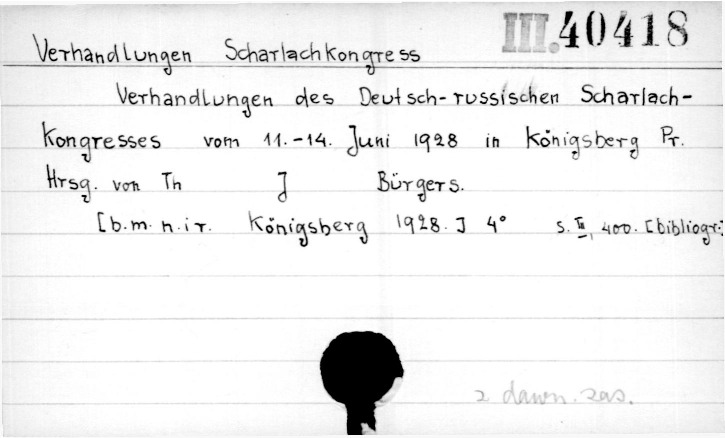 III.40418
Verhandlungen Scharlachkongress
Verhandlungen des Deutsch-russischen Scharlach-
Kongresses vom 11.-14. Juni 1928 in Königsberg Pr.
Hrsg. von Th J Bürgers.
[b.m.n.i r. Königsberg 1928.] 4° s. III, 400. [bibliogr.]
z dawn. zas.